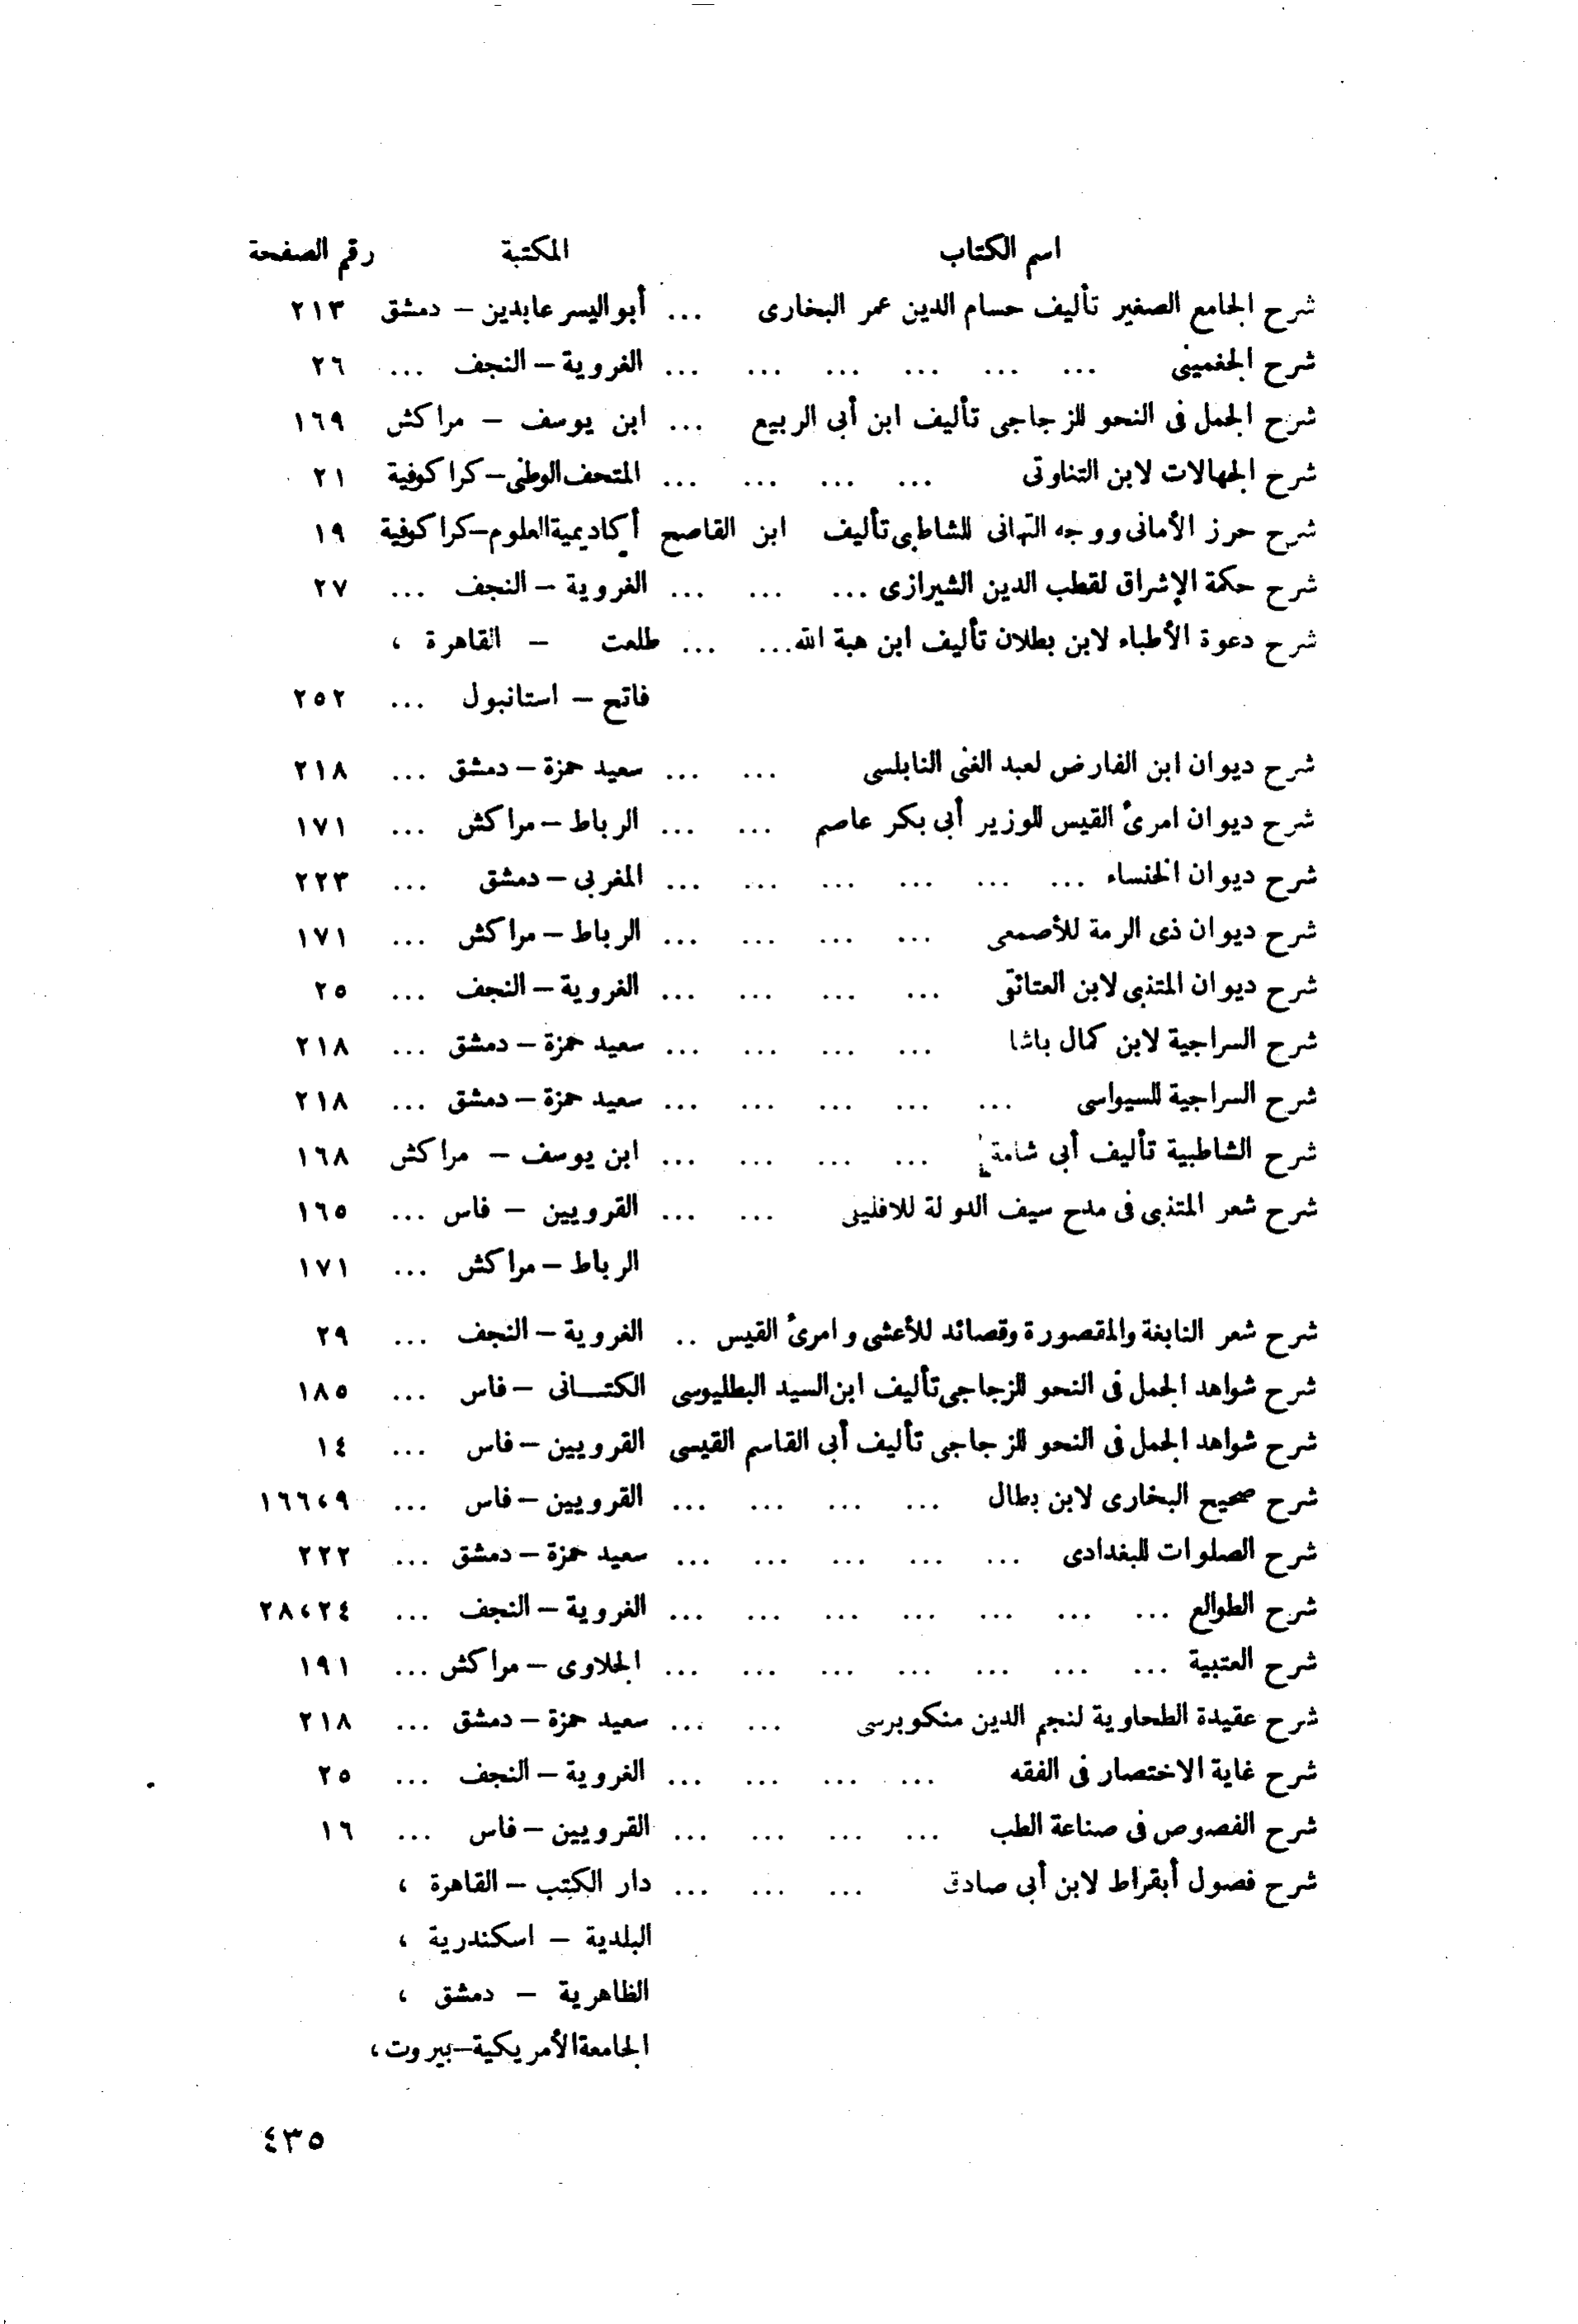 اسم الكتاب المكتبة رقم الصفحة
شرح الجامع الصغير تأليف حسام الدين عمر البخارى ... أبو اليسر عابدين – دمشق ٢١٣
شرح الجغمينى ... ... ... ... ... ... الغروية – النجف ... ٢٦
شرح الجمل فى النحو للزجاجى تأليف ابن أبى الربيع ... ابن يوسف – مراكش ١٦٩
شرح الجهالات لابن التناوتى ... ... ... ... المتحف الوطنى – كراكوفية ٢١
شرح حرز الأمانى ووجه التهانى للشاطبى تأليف ابن القاصح أكاديمية العلوم – كراكوفية ١٩
شرح حكمة الإشراق لقطب الدين الشيرازى ... ... ... الغروية – النجف ... ٢٧
شرح دعوة الأطباء لابن بطلان تأليف ابن هبة الله... ... طلعت – القاهرة ،
فاتح – استانبول ... ٢٥٢
شرح ديوان ابن الفارض لعبد الغنى النابلسى ... ... سعيد حمزة – دمشق ... ٢١٨
شرح ديوان امرئ القيس للوزير أبى بكر عاصم ... ... الرباط – مراكش ... ١٧١
شرح ديوان الخنساء ... ... ... ... ... ... المغربى – دمشق ... ٢٢٣
شرح ديوان ذى الرمة للأصمعى ... ... ... ... الرباط – مراكش ... ١٧١
شرح ديوان المتنبى لابن العتائقى ... ... ... ... الغروية – النجف ... ٢٥
شرح السراجية لابن كمال باشا ... ... ... ... سعيد حمزة – دمشق ... ٢١٨
شرح السراجية للسيواسى ... ... ... ... ... سعيد حمزة – دمشق ... ٢١٨
شرح الشاطبية تأليف أبى شامة ... ... ... ... ابن يوسف – مراكش ١٦٨
شرح شعر المتنبى فى مدح سيف الدولة للافليلى ... ... القرويين – فاس ... ١٦٥
الرباط – مراكش ... ١٧١
شرح شعر النابغة والمقصورة وقصائد للأعشى و امرئ القيس .. الغروية – النجف ... ٢٩
شرح شواهد الجمل فى النحو للزجاجى تأليف ابن السيد البطليوسى الكتانى – فاس ... ١٨٥
شرح شواهد الجمل فى النحو للزجاجى تأليف أبى القاسم القيسى القرويين – فاس ... ١٤
شرح صحيح البخارى لابن بطال ... ... ... ... القرويين – فاس ... ٩،١٦٦
شرح الصلوات للبغدادى ... ... ... ... ... سعيد حمزة – دمشق ... ٢٢٢
شرح الطوالع ... ... ... ... ... ... ... الغروية – النجف ... ٢٤،٢٨
شرح العتبية ... ... ... ... ... ... ... الجلاوى – مراكش ... ١٩١
شرح عقيدة الطحاوية لنجم الدين منكوبرسى ... ... سعيد حمزة – دمشق ... ٢١٨
شرح غاية الاختصار فى الفقه ... ... ... ... الغروية – النجف ... ٢٥
شرح الفصوص فى صناعة الطب ... ... ... ... القرويين – فاس ... ١٦
شرح فصول أبقراط لابن أبى صادق ... ... ... دار الكتب – القاهرة ،
البلدية – اسكندرية ،
الظاهرية – دمشق ،
الجامعة الأمريكية – بيروت ،
٤٣٥